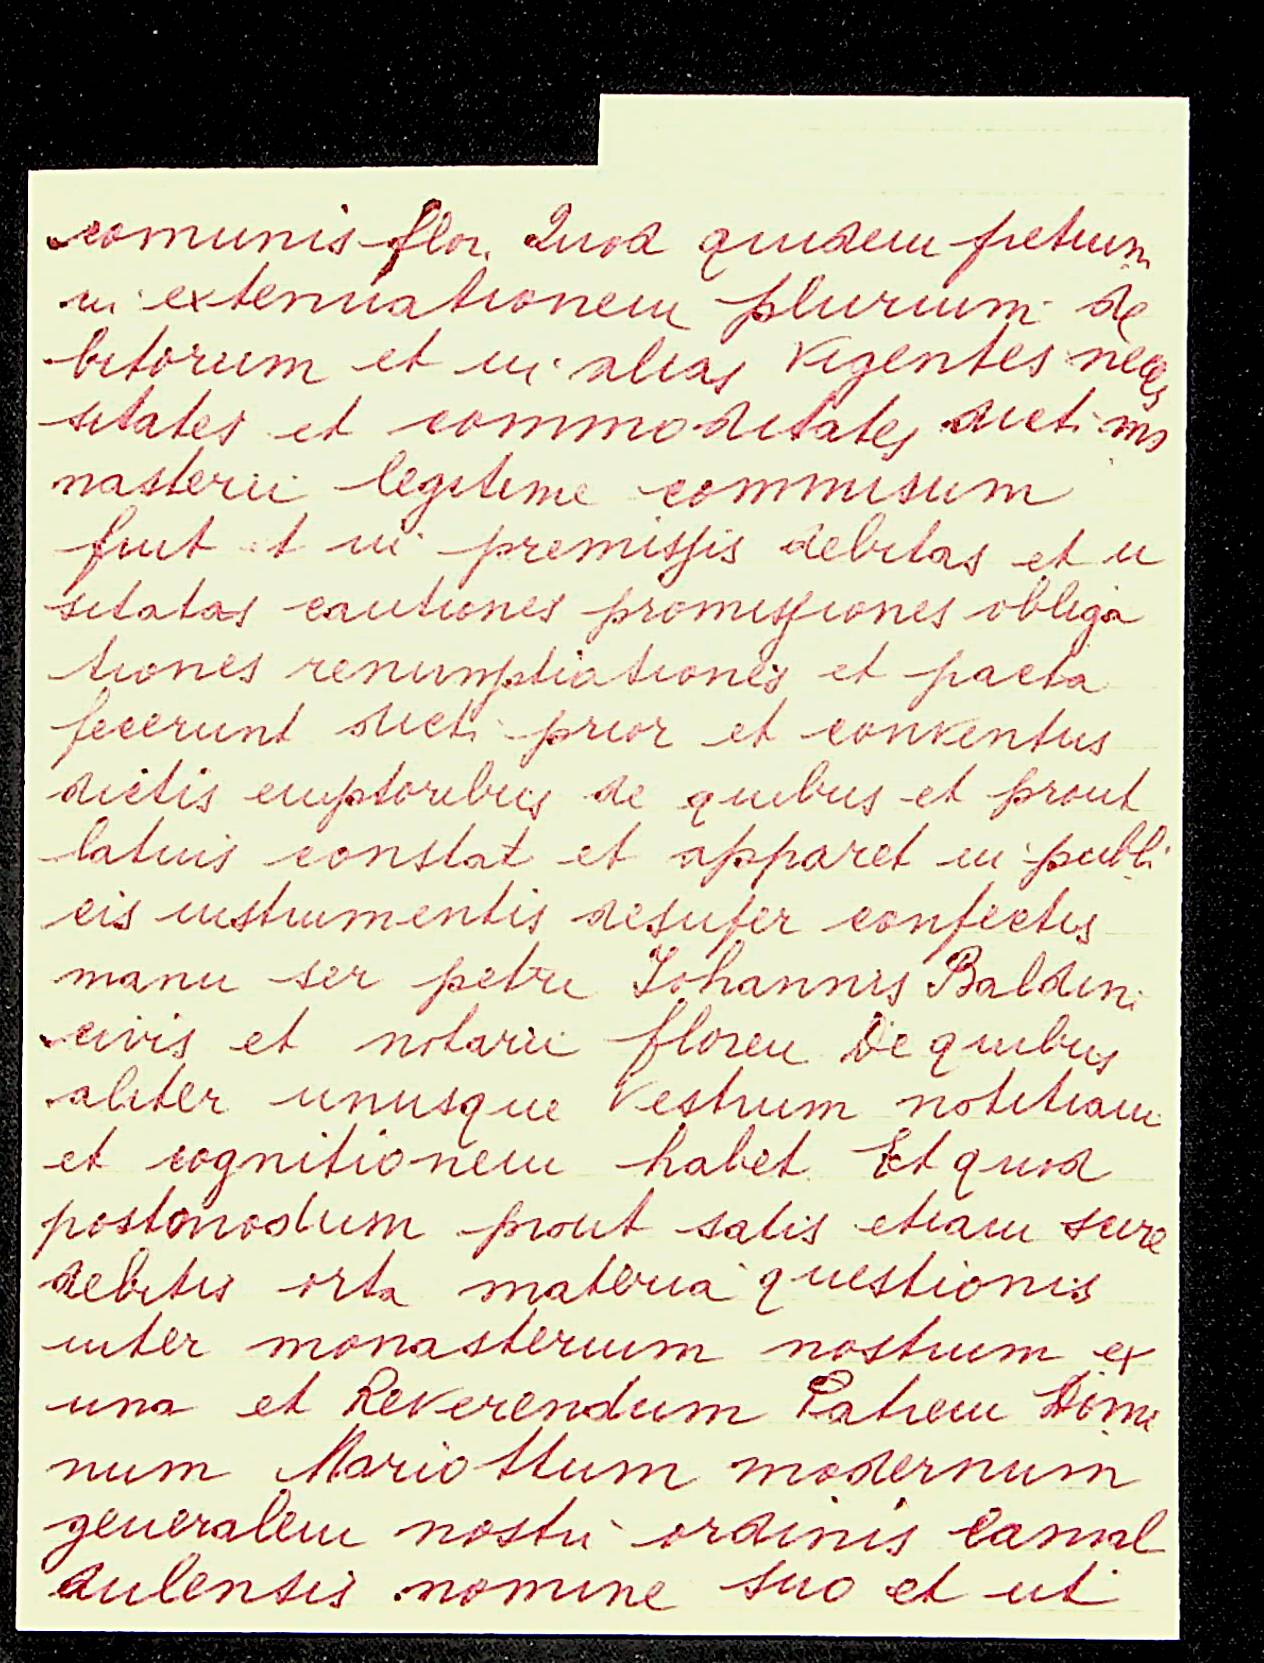 comunis flor. Quod quidem pretium
in extenuationem plurium de
bitorum et in alias vigentes neces
sitates et commoditates dicti mo
nasterii legitime commisum
fuit et in premissis debitas et u
sitatas cautiones promissiones obliga
tiones renumptiationes et pacta
fecerunt dicti prior et conventus
dictis emptoribus de quibus et prout
latius constat et apparet in publi
cis instrumentis desuper confectis
manu ser petri Johannis Baldini
civis et notarii floren De quibus
aliter unusque vestrum notitiam
et cognitionem habet. Et quod
postmodum prout satis etiam scire
debitis orta materia questionis
inter monasterium nostrum ex
una et Reverendum Patrem Domi
num Mariottum modernum
generalem nostri ordinis Camal
dulensis nomine suo et uti